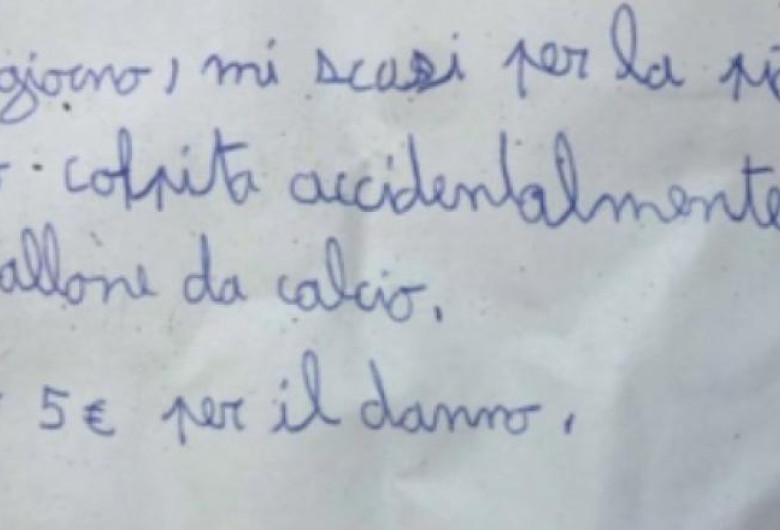 giorno, mi scusi per la pi
. colpita accidentalmente
allone da calcio.
5€ per il danno.